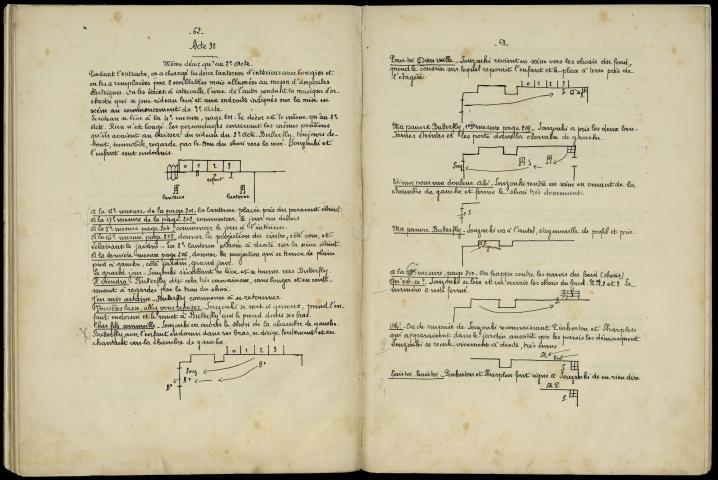 - 62 -
Acte 3e
Même décor qu'au 2e Acte.
Pendant l'entracte, on a changé les deux lanternes d'intérieur avec bougies et
on les a remplacées par 2 semblables mais allumées au moyen d'ampoules
électriques. On les éteint à intervalle l'une de l'autre pendant la musique d'or-
chestre qui se joue rideau levé et aux endroits indiqués sur la mise en
scène au commencement du 3e Acte.
Le rideau se lève à la 4e mesure, page 201. Le décor est le même qu'au 2e
Acte. Rien n'est bougé. Les personnages conservent les mêmes positions
qu'ils avaient au baisser du rideau du 2e Acte. Butterfly, toujours de-
bout, immobile, regarde par le trou du shosi vers la mer. Souzouki et
l'enfant sont endormis.
0 1 2 3
enfant S.
lanterne lanterne
A la mesure de la page 201, la lanterne placée près du paravent s'éteint.
A la 17e mesure de la page 202, commencer le jour au dehors
A la 2e mesure page 204 commencer le jour à l'intérieur.
A la mesure page 205, donner la projection du cintre, côté cour, et
éclairant le jardin. La 2e lanterne placée à droite sur la scène s'éteint.
A la dernière mesure page 206, donner la projection qui se trouve de plain
pied à gauche, côté jardin, grand jour.
Le grand jour - Souzouki s'éveillant se lève et se tourne vers Butterfly.
Il viendra - Butterfly dit cela très convaincue, sans bouger et en conti-
nuant à regarder par le trou du shosi.
J'en suis certaine - Butterfly commence à se retourner.
Vous êtes lasse, allez vous reposer - Souzouki se met à genoux, prend l'en-
fant endormi et le remet à Butterfly qui le prend dans ses bras.
Cher fils sommeille - Souzouki va ouvrir le shosi de la chambre de gauche.
Butterfly avec l'enfant endormi dans ses bras, se dirige lentement et en
chantant vers la chambre de gauche.
0 1 2 3
Souz. B+
B+ B+
- 63 -
Pour toi Dieu veille - Souzouki revient en scène vers les shosis du fond,
prend le coussin sur lequel reposait l'enfant et le place à terre près de
l'étagère.
0 1 2 3
S.
Ma pauvre Butterfly, mesure page 209. Souzouki a pris les deux lan-
ternes éteintes et les porte dans la chambre de gauche.
Souz. S
Et moi pour ma douleur. Ah! - Souzouki rentre en scène en venant de la
chambre de gauche et ferme le shosi très doucement.
S.
Ma pauvre Butterfly - Souzouki va à l'autel, s'agenouille de profil et prie.
S.
A la mesure, page 210. On frappe contre les parois du fond (shosis)
Qui est-ce? Souzouki se lève et va ouvrir les shosis du fond. No 1, 2 et 3. Le
numéro 0 reste fermé.
S.
Oh! - Cri de surprise de Souzouki reconnaissant Pinkerton et Sharpless
qui apparaissent dans le jardin aussitôt que les parois les démasquent
Souzouki se recule vivement à droite, très émue.
S.
Tais-toi. Tais-toi - Pinkerton et Sharpless font signe à Souzouki de ne rien dire
Sh. P.
S.